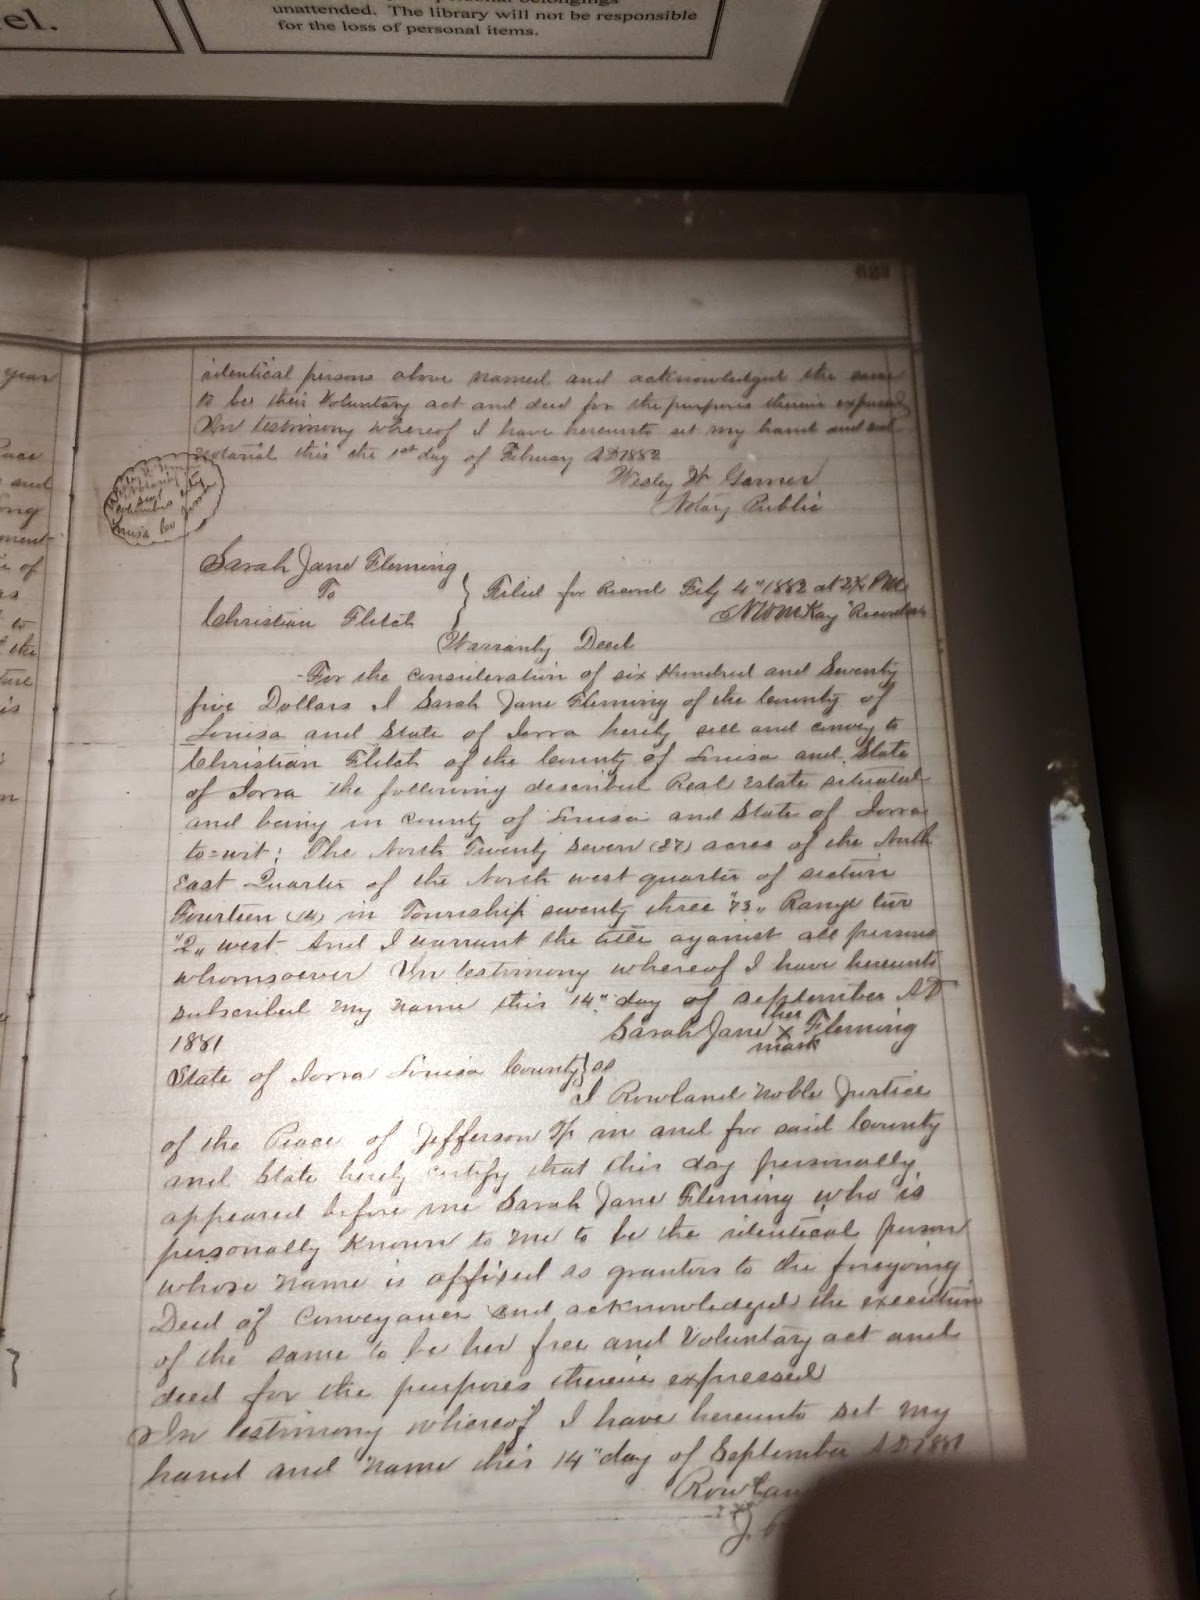 el.
unattended. The library will not be responsible
for the loss of personal items.
year
and
ment
of
to
the
is
identical persons above named and acknowledged the same
to be their Voluntary act and deed for the purposes therein expressed
In testimony whereof I have hereunto set my hand and seal
Notarial this the 1st day of February AD 1882
Wesley W Garner
Notary Public
Louisa Co
Sarah Jane Fleming
To
Christian Fletch
} Filed for Record Feby 4" 1882 at 2 1/2 PM
N W McKay Recorder
Warranty Deed
For the consideration of six Hundred and Seventy
five Dollars I Sarah Jane Fleming of the County of
Louisa and State of Iowa hereby sell and convey to
Christian Fletch of the County of Louisa and State
of Iowa the following described Real Estate situated
and being in County of Louisa and State of Iowa
to=wit: The North Twenty Seven (27) acres of the North
East Quarter of the North west quarter of section
Fourteen (14) in Township seventy three "73" Range two
"2" west And I warrant the title against all persons
whomsoever In testimony whereof I have hereunto
subscribed my name this 14" day of September AD
1881
Sarah Jane her x mark Fleming
State of Iowa Louisa County} ss
I Rowland Noble Justice
of the Peace of Jefferson Tp in and for said County
and State hereby certify that this day personally
appeared before me Sarah Jane Fleming who is
personally Known to me to be the identical person
whose name is affixed as grantors to the foregoing
Deed of Conveyance and acknowledged the execution
of the same to be her free and Voluntary act and
deed for the purposes therein expressed
In testimony whereof I have hereunto set my
hand and name this 14" day of September AD 1881
Rowlan
J.